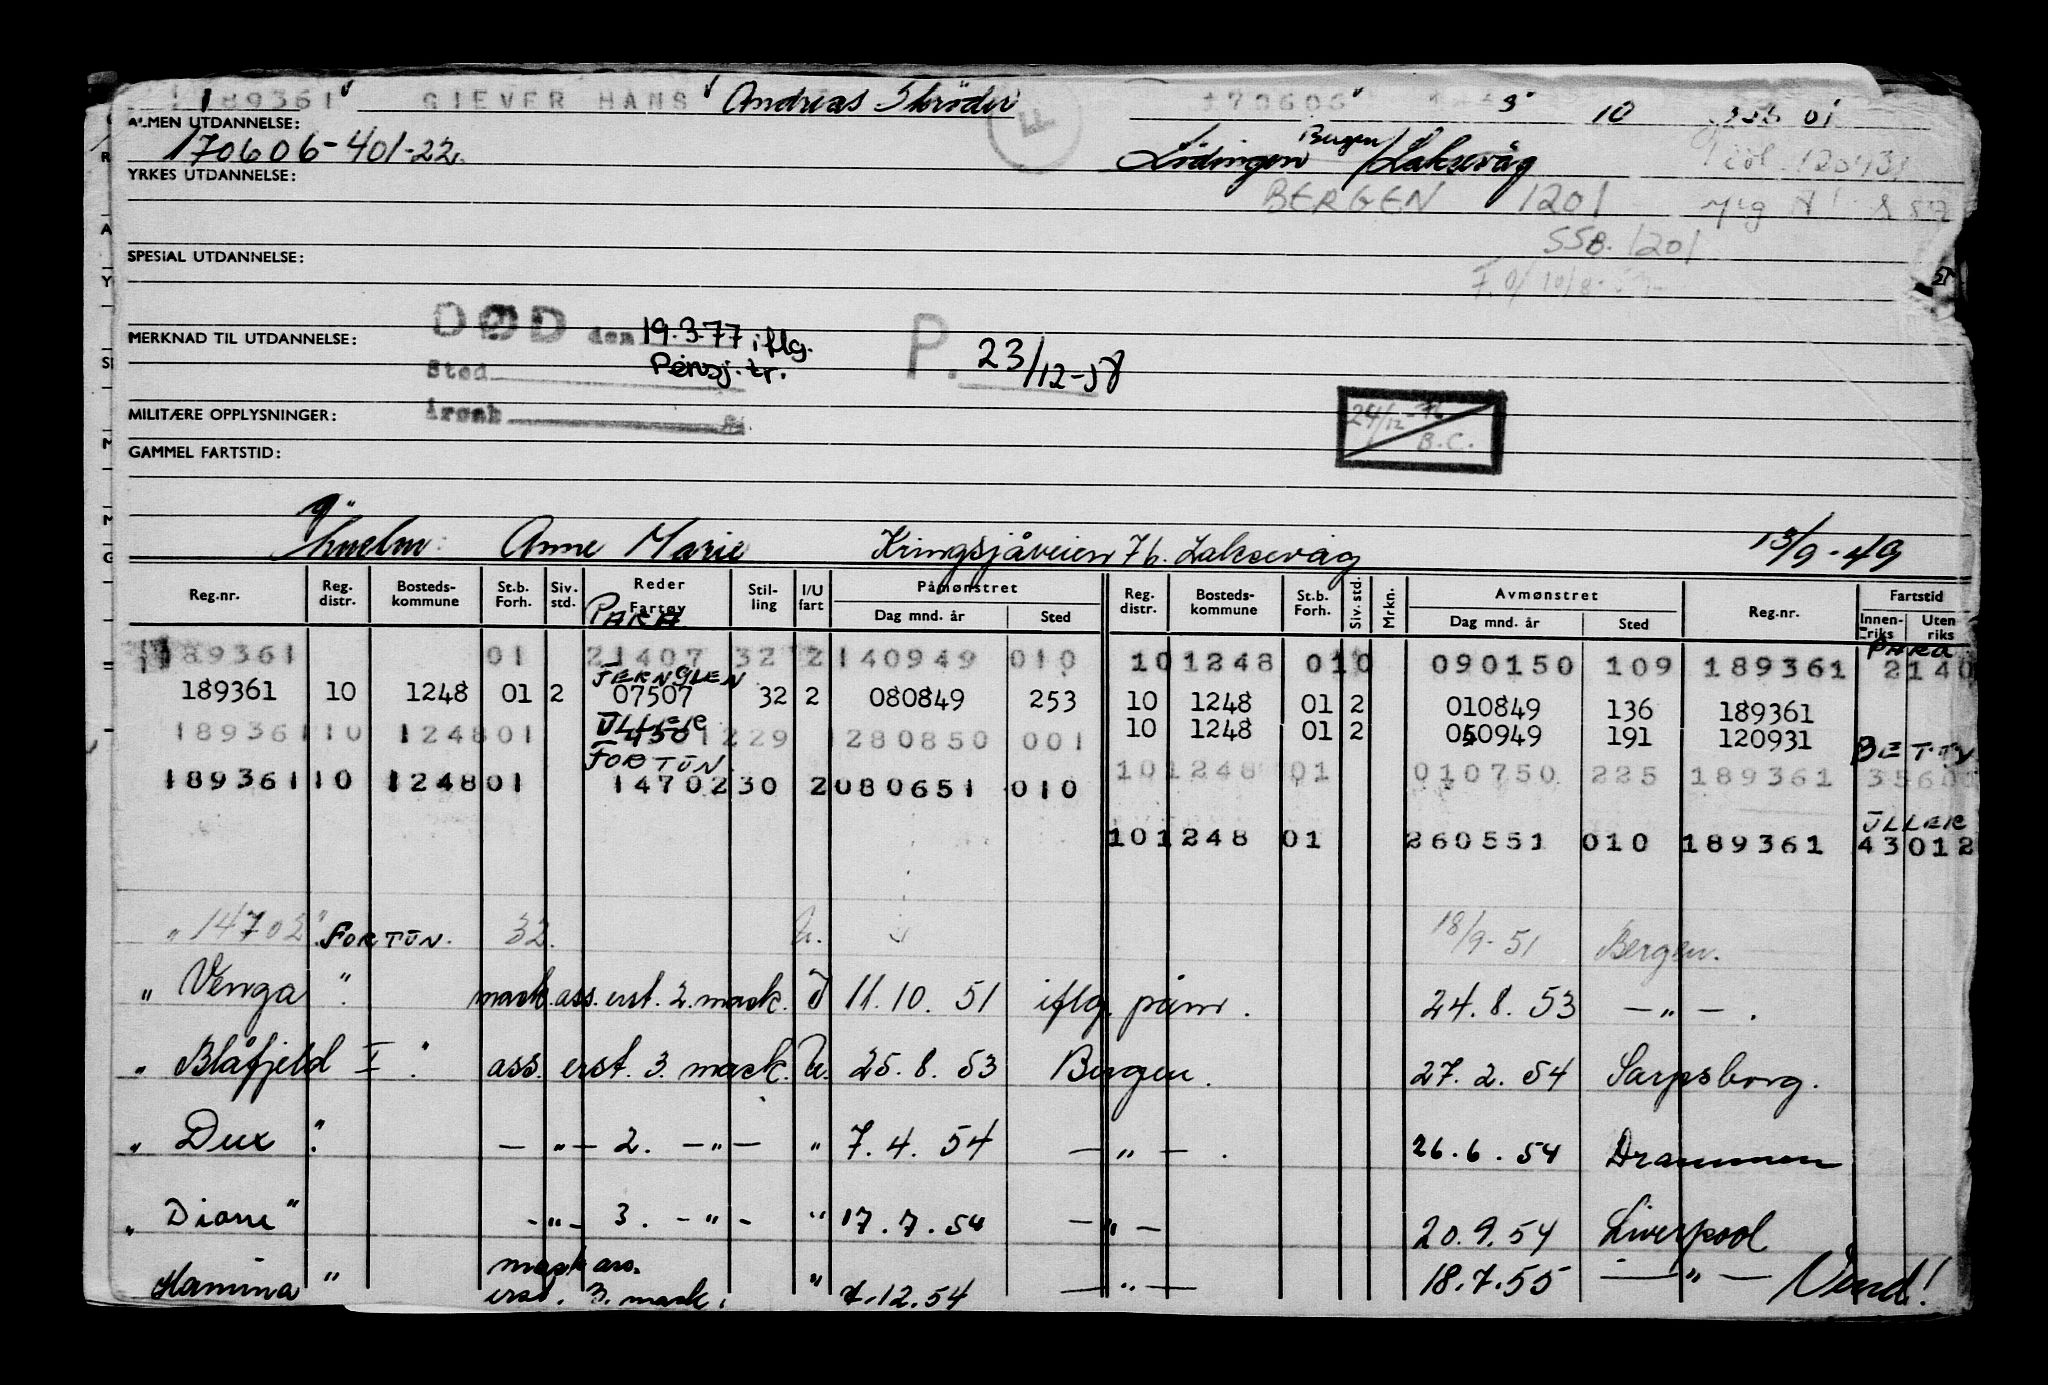 189361 GIEVER HANS Andreas Skrøder 170606 3 10 01
ALMEN UTDANNELSE:
170606-401-22. Lødingen Bergen/Laksevåg
YRKES UTDANNELSE:
BERGEN 1201
SSB. 1201
SPESIAL UTDANNELSE:
MERKNAD TIL UTDANNELSE: DØD den 19.3.77 iflg. P. 23/12-58
Sted Pensj.tr.
MILITÆRE OPPLYSNINGER: årsak 24/12-76
B.C.
GAMMEL FARTSTID:
Anne Marie Kringsjåveien 76. Laksevåg 13/9-49
Reg.nr. Reg. distr. Bosteds-kommune St.b. Forh. Siv. std. Reder Fartøy Stil-ling I/U fart Påmønstret Dag mnd. år Sted Reg. distr. Bosteds-kommune St.b. Forh. Siv. std. Mrkn. Avmønstret Dag mnd. år Sted Reg.nr. Fartstid Innen-riks Uten riks
PARA PARA
189361 01 21407 32 2 140949 010 10 1248 01 0 090150 109 189361 2140
JERNGLEN
189361 10 1248 01 2 07507 32 2 080849 253 10 1248 01 2 010849 136 189361
ULLER 10 1248 01 2 050949 191 120931
189361 10 1248 01 43012 29 280850 001 BETTY
FORTUN 10 1248 01 010750 225 189361 3560
189361 10 1248 01 14702 30 2 080651 010
ULLER
10 1248 01 260551 010 189361 43012
" 14702" FORTUN. 32. U. 18/9-51 Bergen.
" Venga ". mask.ass. erst. 2. mask. I 11.10.51 iflg. påm. 24.8.53 — " — .
" Blåfjeld I ". ass. erst. 3. mask. U. 25.8.53 Bergen. 27.2.54 Sarpsborg.
" Dux ". — " — 2. — " — " 7.4.54 — " — . 26.6.54 Drammen
" Diana" — " — 3. — " — " 17.7.54 — " — 20.9.54 Liverpool
Hamina " mask ass. erst. 3. mask. " 7.12.54 — " — 18.7.55 — " — Vend!